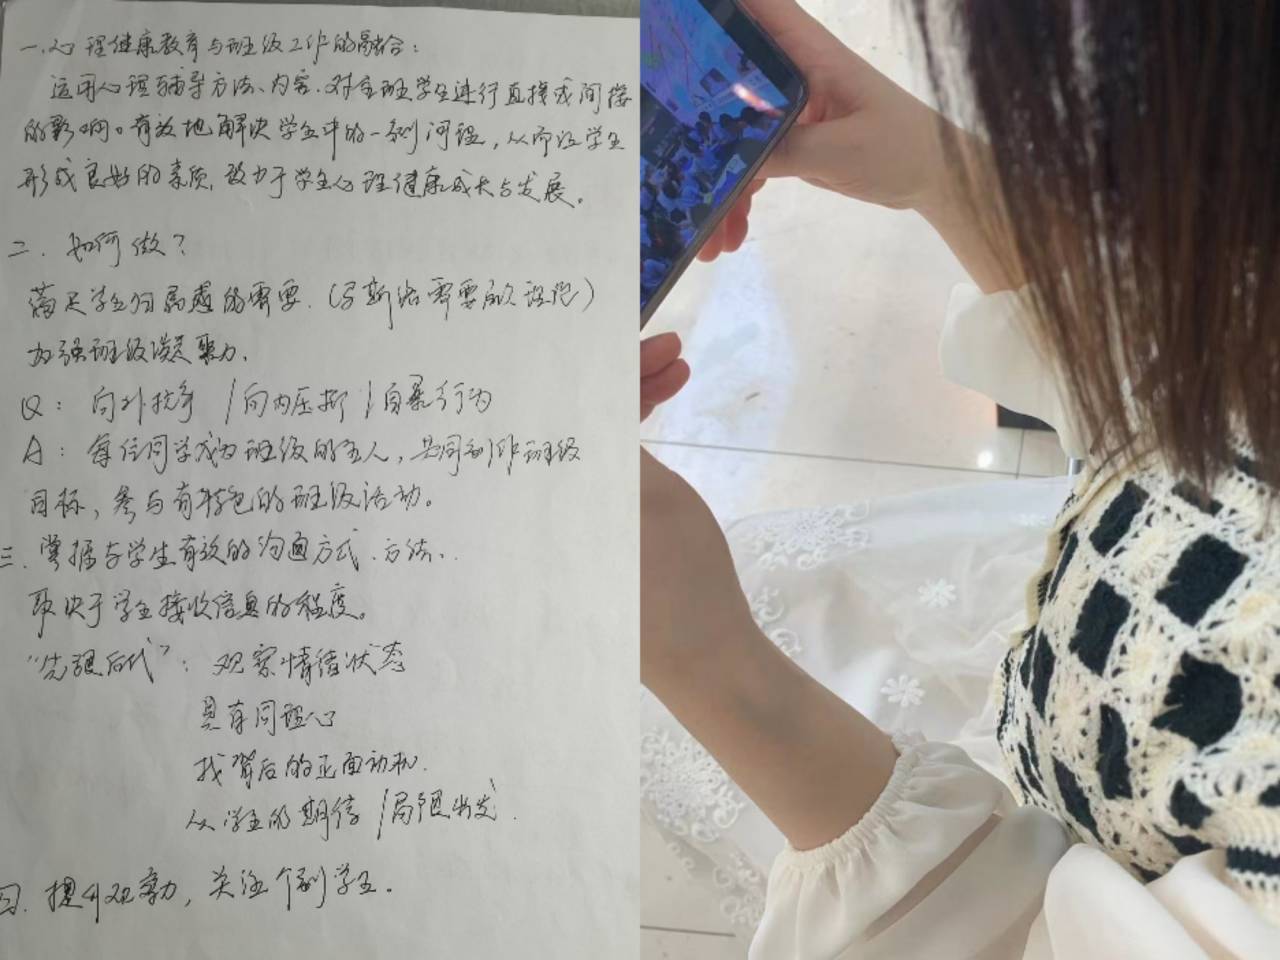 一.心理健康教育与班级工作的融合：
运用心理辅导方法、内容.对全班学生进行直接或间接
的影响。有效地解决学生中的一系列问题，从而让学生
形成良好的素质，致力于学生心理健康成长与发展。
二. 如何做？
满足学生归属感的需要.（马斯洛需要层次理论）
加强班级凝聚力.
Q：向外抗争 /向内压抑 /自暴行为
A：每位同学成为班级的主人，共同制作班级
目标，参与有特色的班级活动。
三.掌握与学生有效的沟通方式、方法.
取决于学生接收信息的程度。
"先跟后代"：观察情绪状态
具有同理心
找背后的正面动机.
从学生的期待/局限出发.
四.提升观察力，关注个别学生.